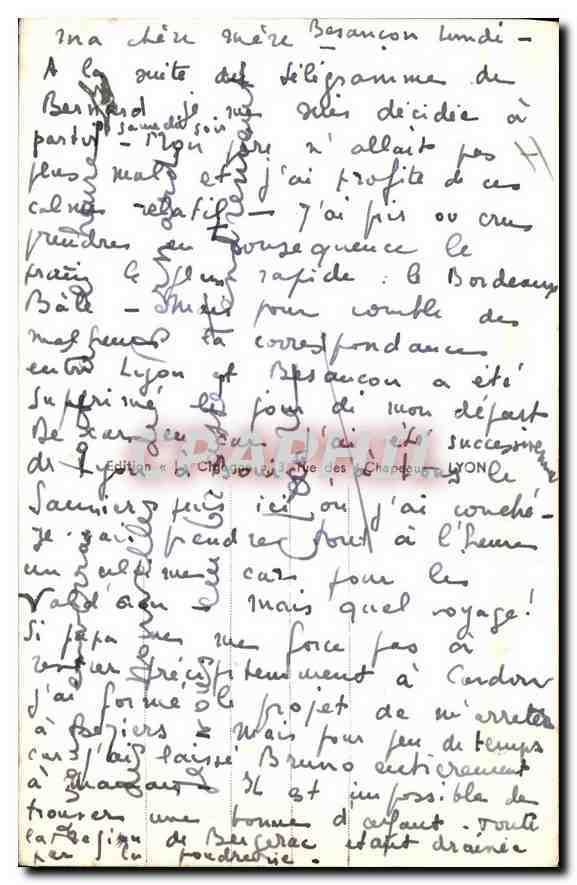 ma chère mère Besançon lundi -
A la suite du télégramme de
Bernard je me suis décidée à
partir samedi soir - Mon père n'allait pas
plus mal et j'ai profité de ces
calmes relatifs - J'ai pis ou crus
prendres en consequence le
train le plus rapide : le Bordeaux
Bâle - Mais pour comble des
malheurs la correspondances
entre Lyon et Besançon a été
supprimé le jour de mon départ
De car en car j'ai été successivement
de Lyon à Bourg à Lons le
Saunier puis ici où j'ai couché -
Je vais prendre tout à l'heure
un ultime cars pour les
Valdahon - mais quel voyage!
Si papa ne me force pas à
rentrer précipitemment à
j'ai formé le projet de m'arreter
à Beziers mais pour peu de temps
car j'ai laissé Bruno entierement
à maman - Il est impossible de
trouver une bonne d'enfant. Toute
la region de Bergerac étant drainée
par la poudrerie.
Edition « La Cigogne » 3, rue des Chapeau LYON
CPAPHIL
nouvelles
je vous embrasse tendrement